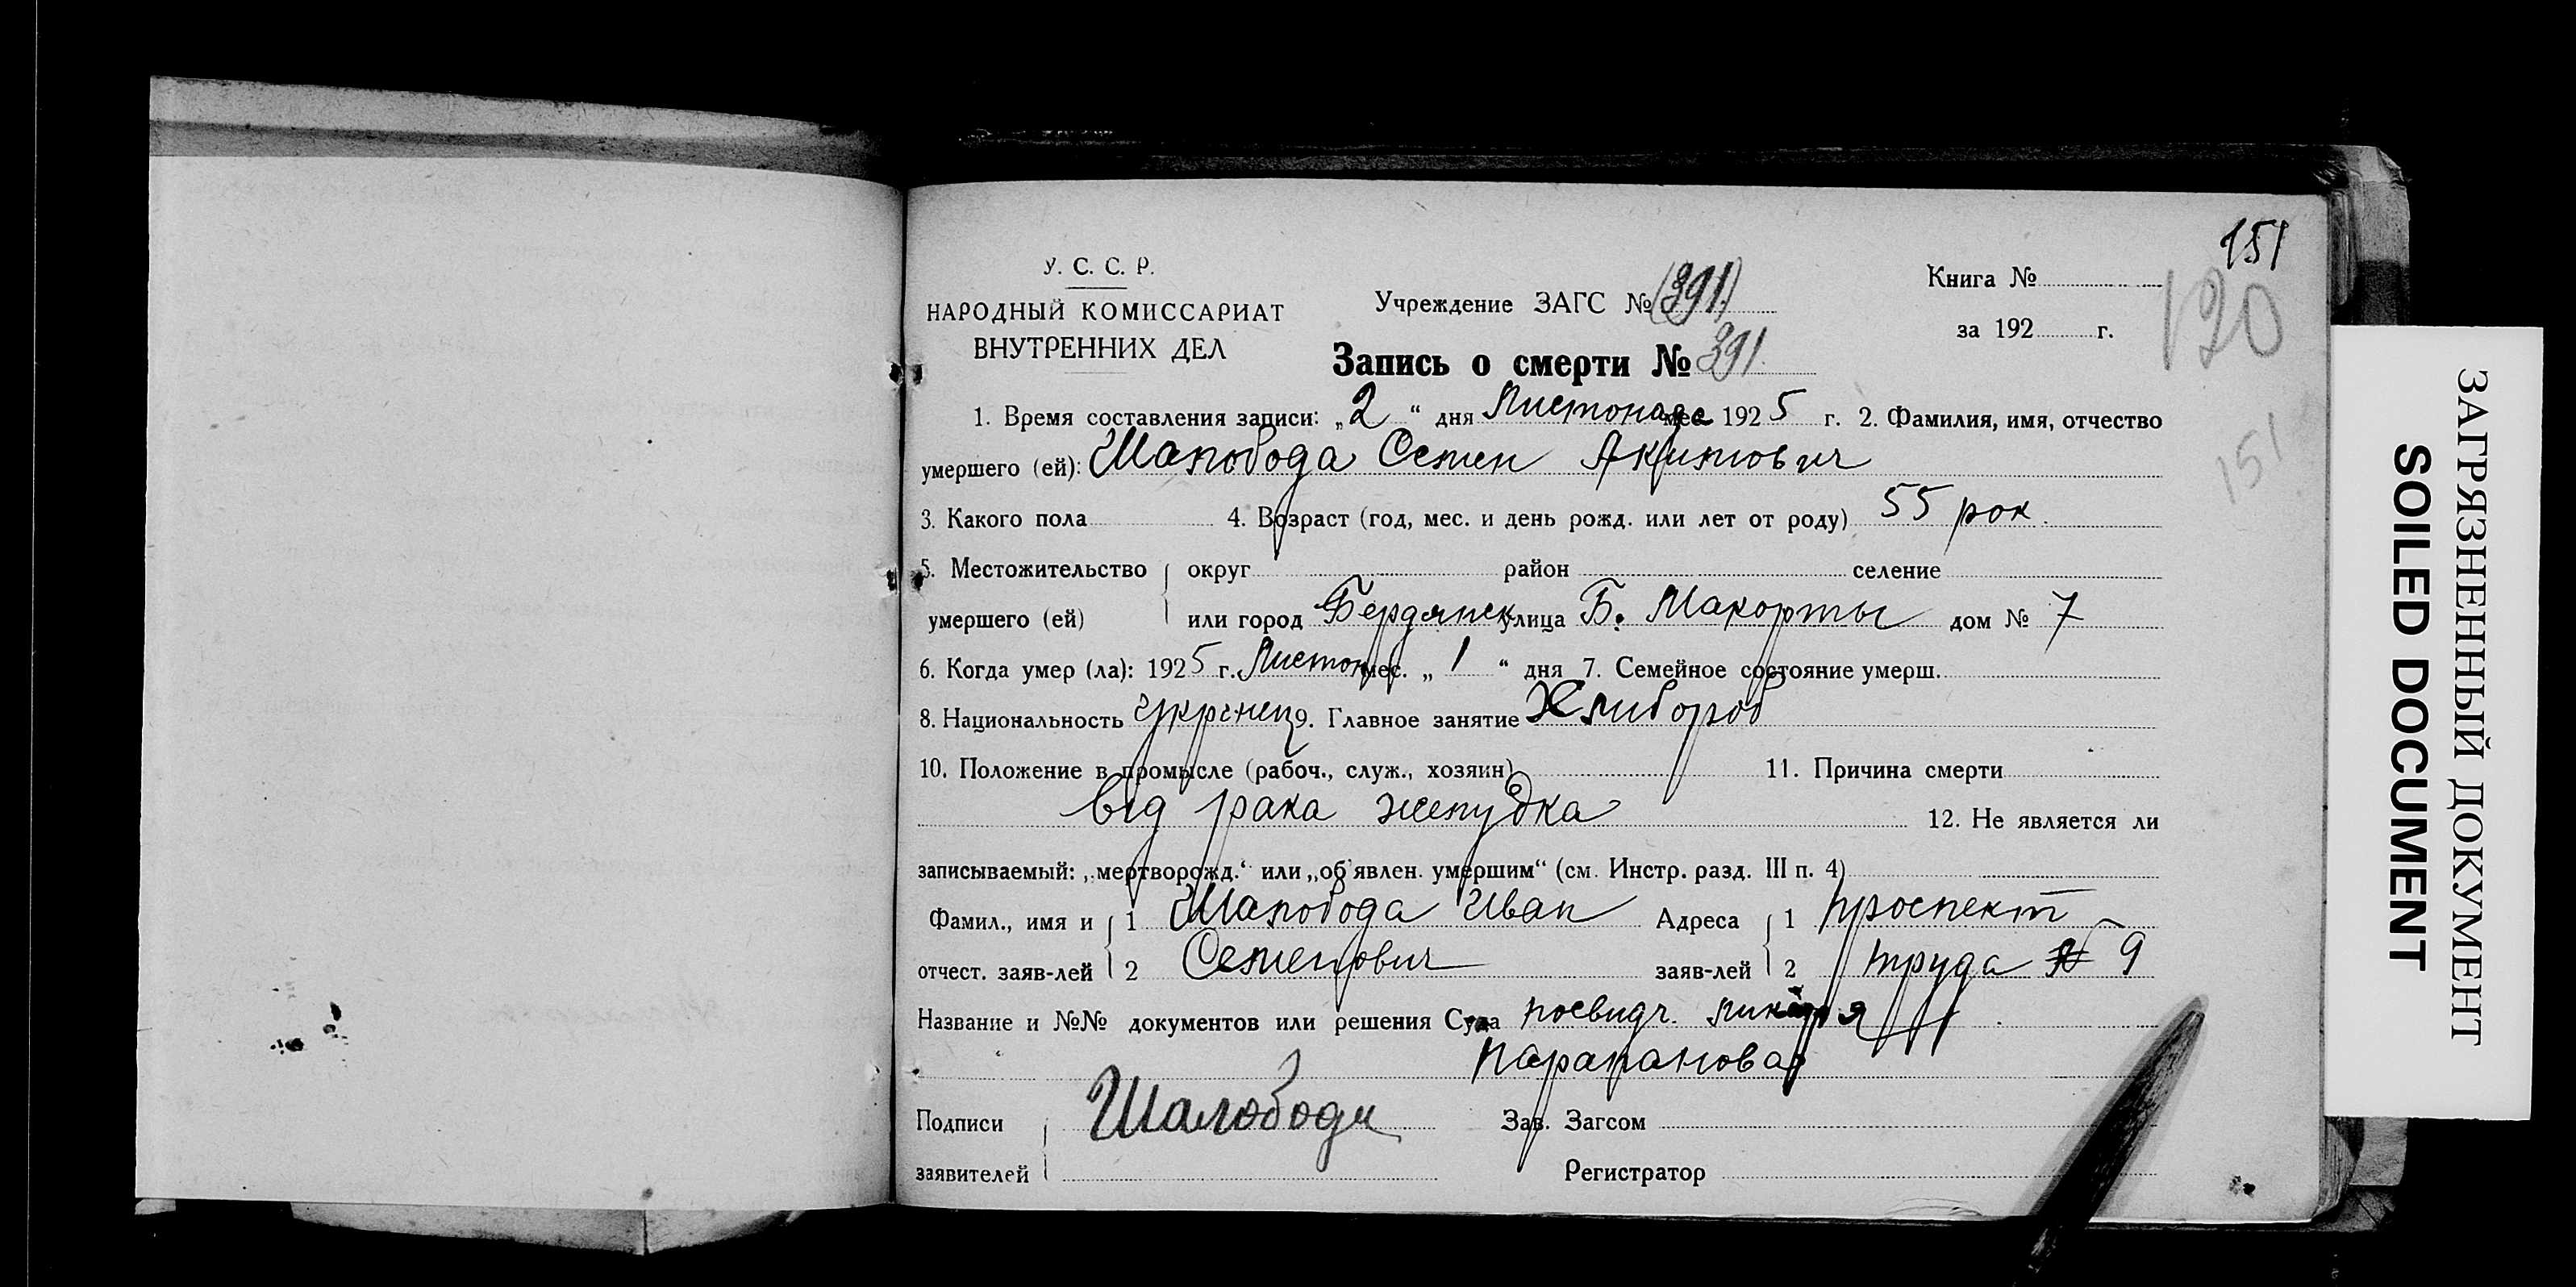 151
У. С. С. Р.
НАРОДНЫЙ КОМИССАРИАТ
ВНУТРЕННИХ ДЕЛ
Учреждение ЗАГС № (391)
Книга №
за 192 г.
120
Запись о смерти № 391.
1. Время составления записи: „2“ дня Листопада мес 1925 г. 2. Фамилия, имя, отчество
умершего (ей): Шаповода Семен Акимович
151
3. Какого пола 4. Возраст (год, мес. и день рожд. или лет от роду) 55 рок.
5. Местожительство округ район селение
умершего (ей) или город Бердянск улица Б. Макорты дом № 7
6. Когда умер (ла): 1925 г. Листоп мес. „1“ дня 7. Семейное состояние умерш.
8. Национальность 9. Главное занятие Хлибороб
10. Положение в промысле (рабоч., служ., хозяин) 11. Причина смерти
від рака желудка 12. Не является ли
записываемый: „мертворожд.“ или „об'явлен. умершим“ (см. Инстр. разд. III п. 4)
Фамил., имя и 1 Шаповода Иван Адреса 1 проспект
отчест. заяв-лей 2 Семенович заяв-лей 2 труда № 9
Название и №№ документов или решения Суда посвидч. ликаря
Параманова
Подписи Шаловода Зав. Загсом
заявителей Регистратор
ЗАГРЯЗНЕННЫЙ ДОКУМЕНТ
SOILED DOCUMENT